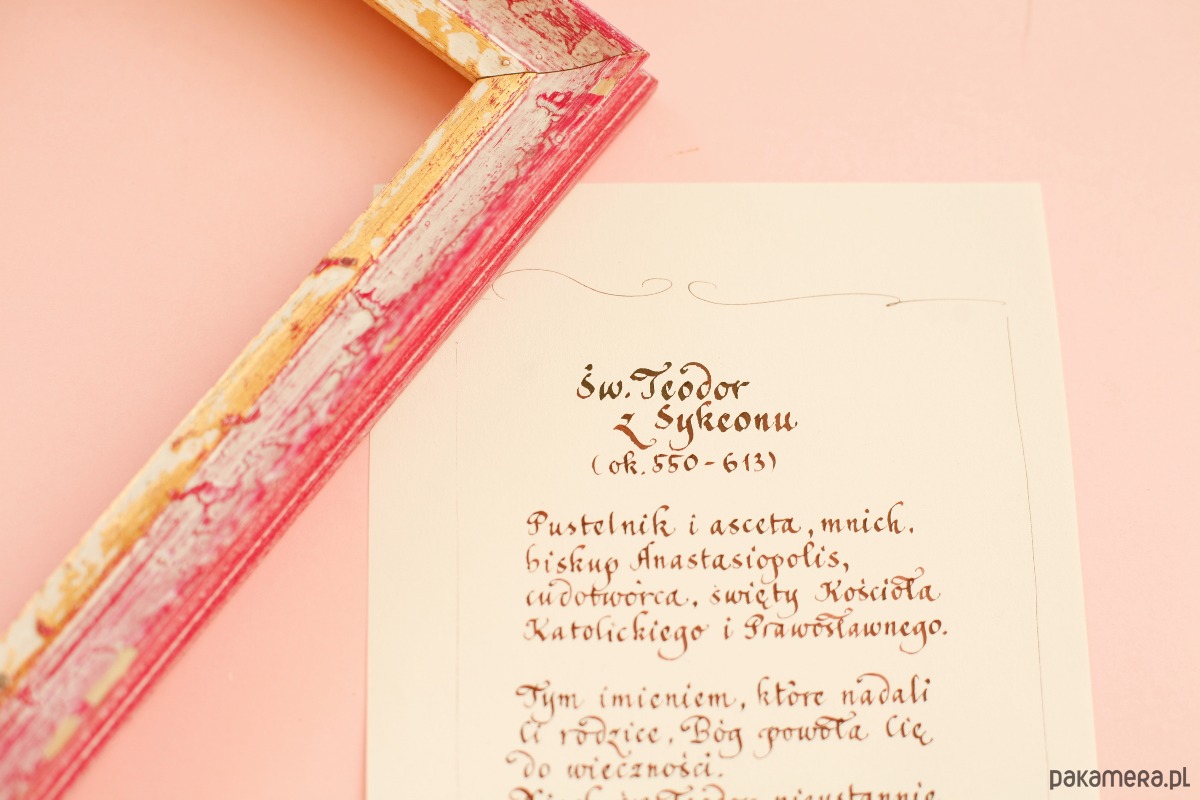 Św. Teodor
z Sykeonu
(ok. 550-613)
Pustelnik i asceta, mnich,
biskup Anastasiopolis,
cudotwórca, święty Kościoła
Katolickiego i Prawosławnego.
Tym imieniem, które nadali
Ci rodzice, Bóg powoła Cię
do wieczności.
Niech św. Teodor nieustannie
pakamera.pl